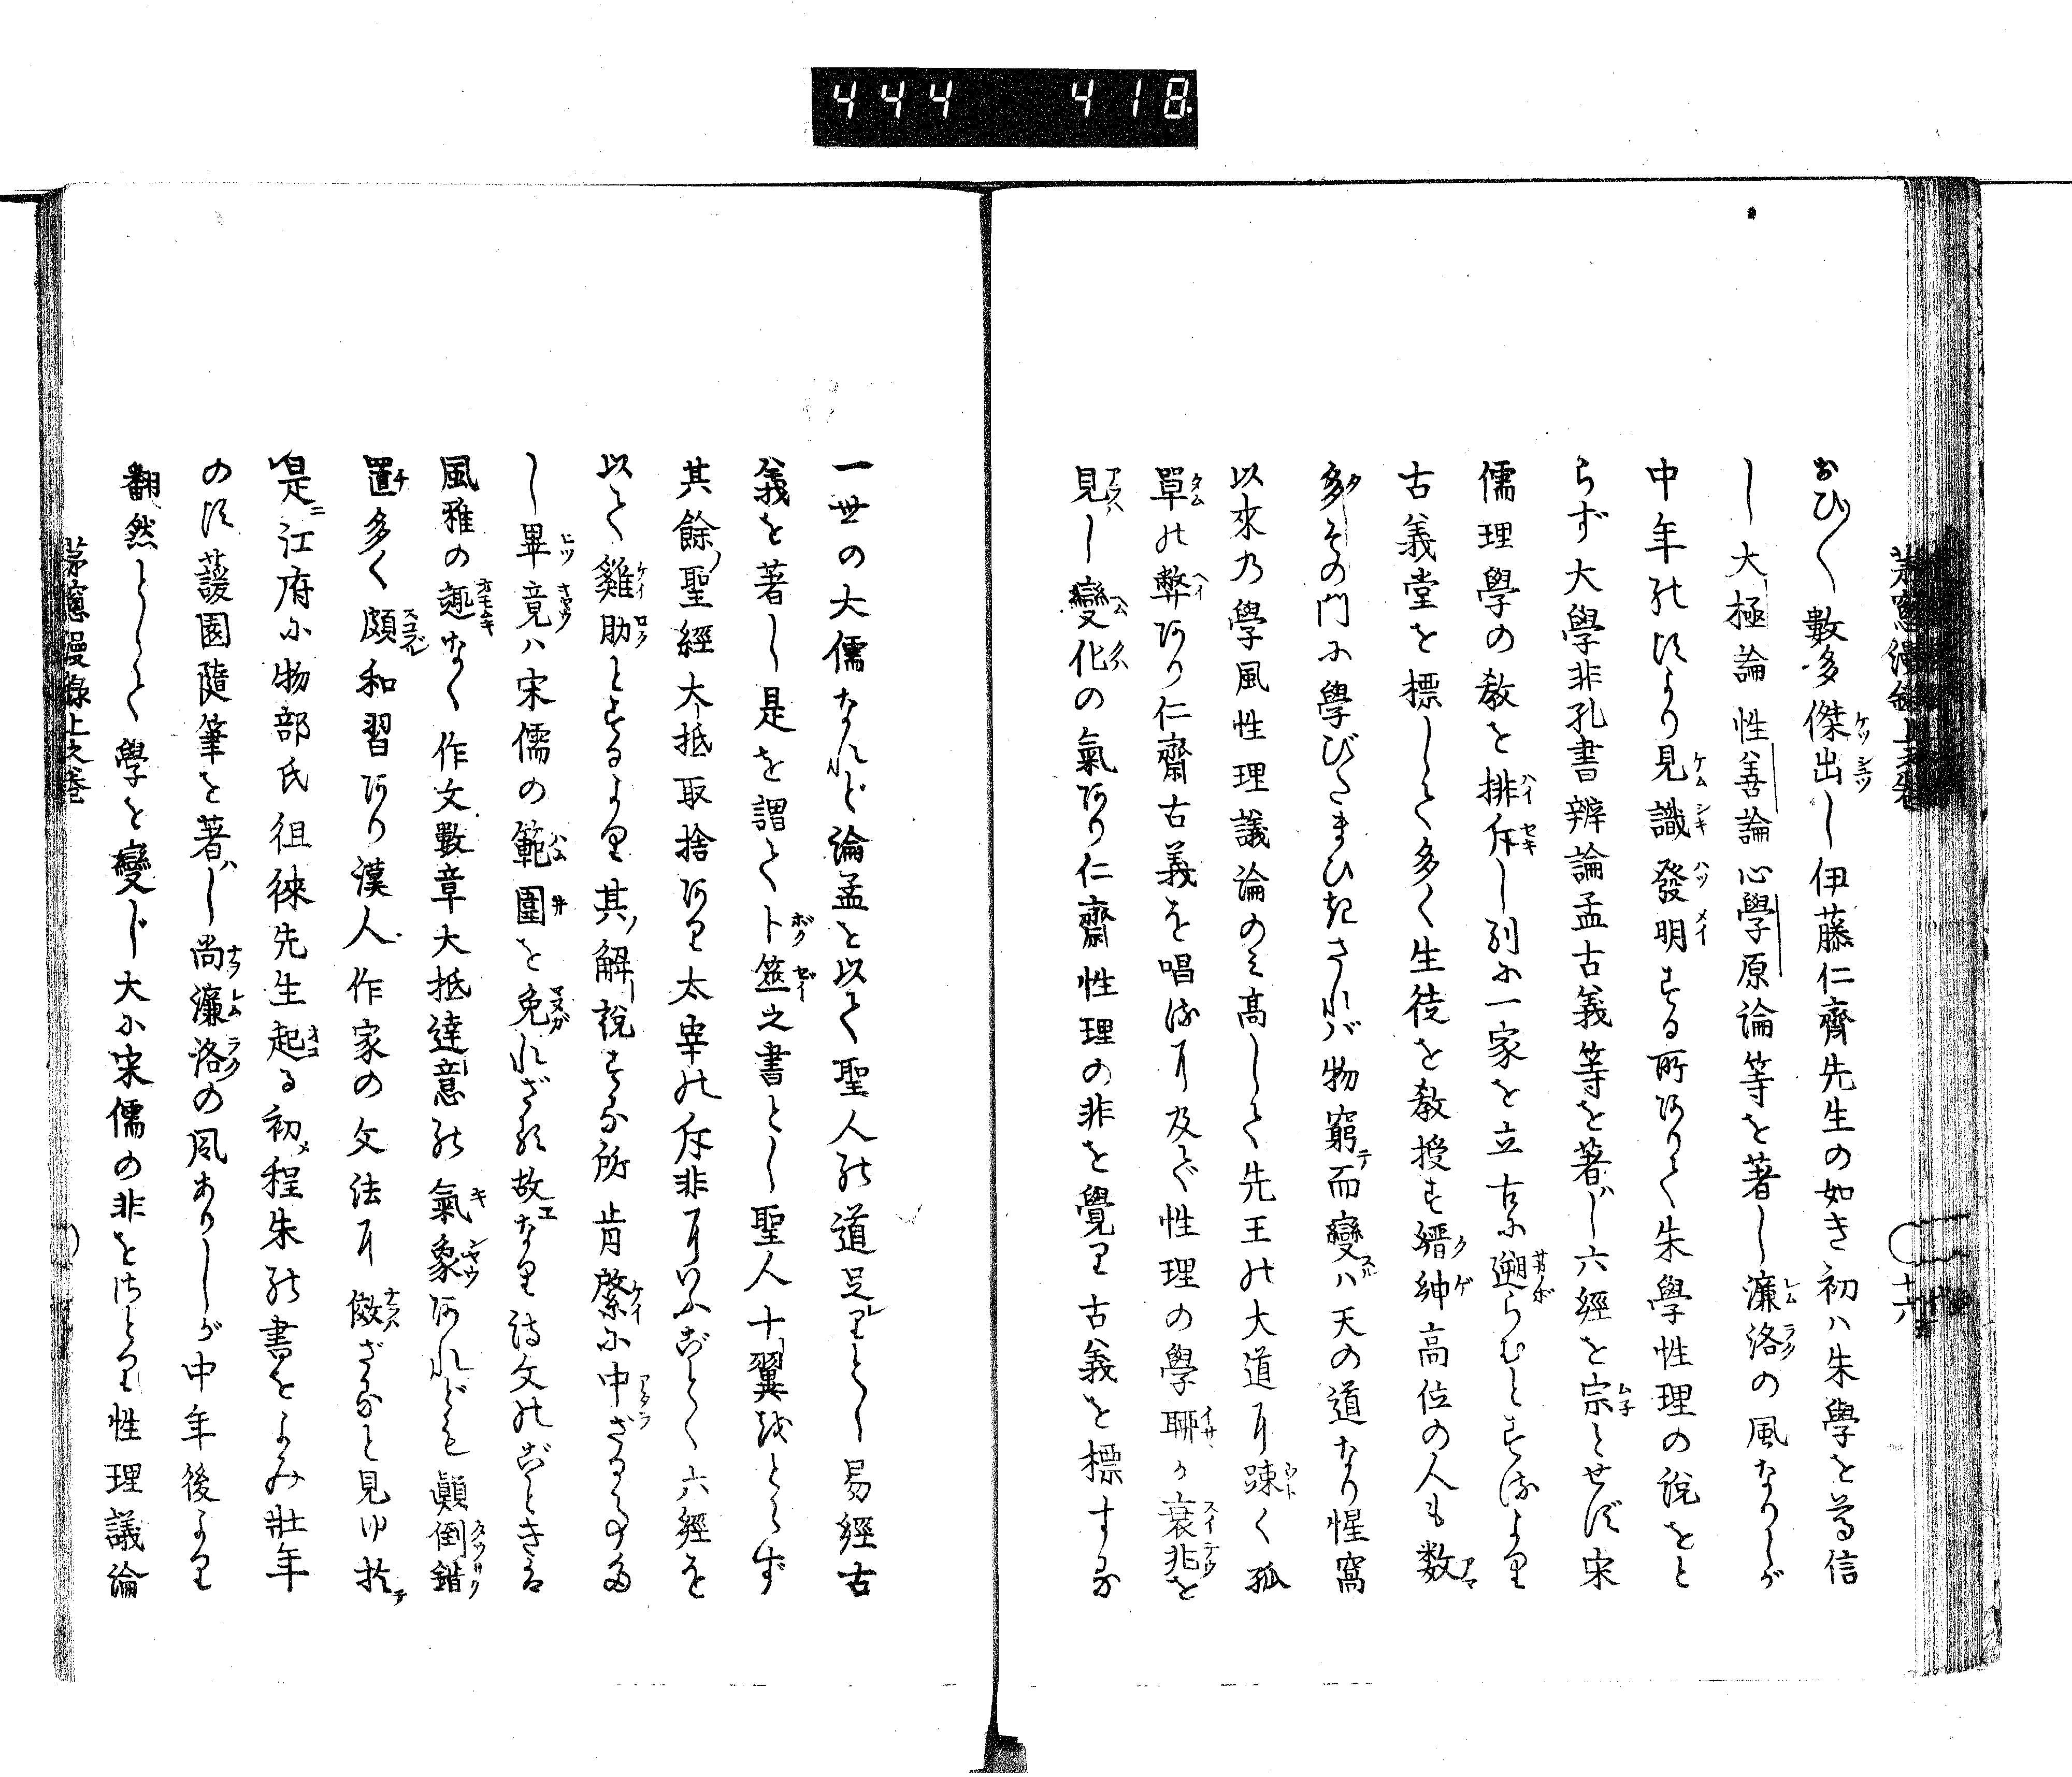 444 418
茅窓漫録上之巻 十六
おひ〱數多傑出し伊藤仁齊先生の如き初ハ朱學を尊信
し大極論性善論心學原論等を著し濂洛の風なりしが
中年のころより見識發明する所ありて朱學性理の説をと
らず大學非孔書辨論孟古義等を著し六經を宗とせず宋
儒理學の教を排斥し別に一家を立古に遡らむとするより
古義堂を標して多く生徒を教授す縉紳高位の人も数
多その門に學びたまひきされバ物窮而變ハ天の道なり惺窩
以來乃學風性理議論のミ高して先王の大道に踈く孤
單の弊あり仁齋古義を唱るに及びて性理の學聊か衰兆を
見し變化の氣あり仁齋性理の非を覺り古義を標する
一世の大儒なれど論孟を以て聖人の道足りとし易經古
義を著し是を謂てト筮之書とし聖人十翼説とらず
其餘聖經大抵取捨あり太宰の斥非にいふごとく六經を
以て雞肋とするより其解説する所肯綮に中ざる事多
し畢竟ハ宋儒の範圍を免れざる故なり詩文のごときは
風雅の趣なく作文數章大抵達意の氣象あれども顚倒錯
置多く頗和習あり漢人作家の文法に倣ざると見ゆ於
是江府に物部氏徂徠先生起る初程朱の書をよみ壯年
のころ蘐園隨筆を著し尚濂洛の風ありしが中年後より
翻然として學を變じ大に宋儒の非をさとり性理議論
茅窓漫録上之巻